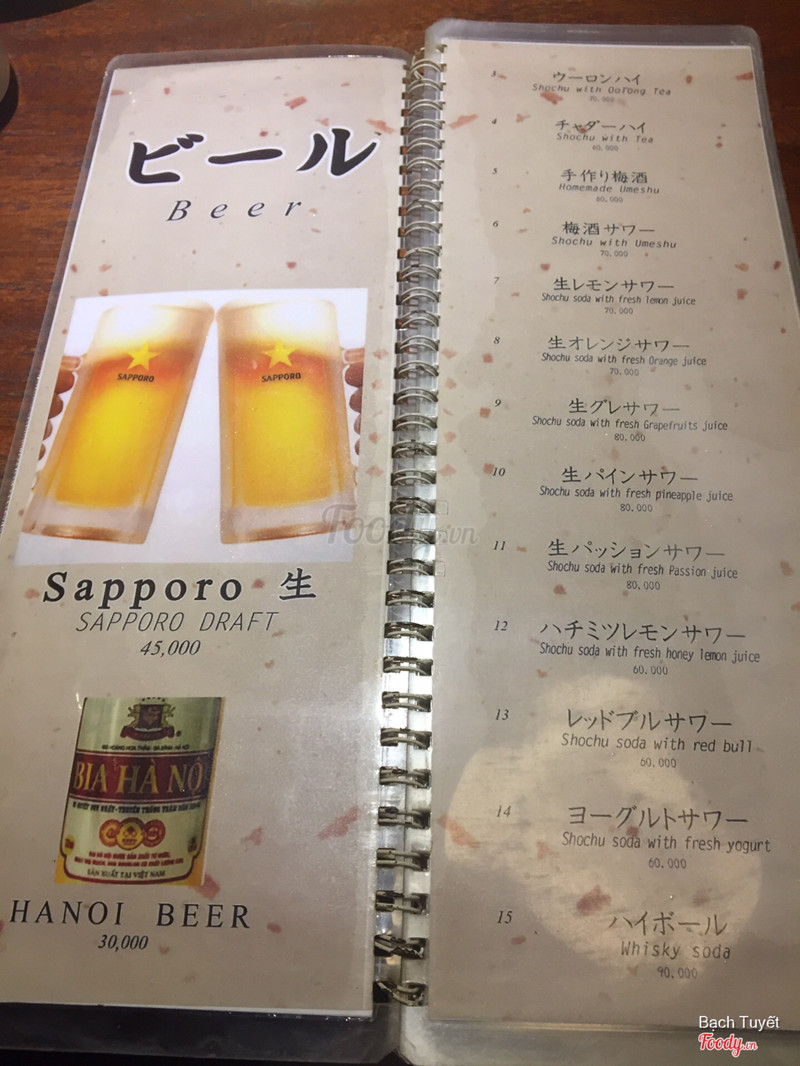 ビール
Beer
SAPPORO
SAPPORO
Sapporo 生
SAPPORO DRAFT
45,000
BIA HÀ NỘI
SẢN XUẤT TẠI VIỆT NAM
HANOI BEER
30,000
3 ウーロンハイ
Shochu with OoTong Tea
70.000
4 チャダーハイ
Shochu with Tea
60.000
5 手作り梅酒
Homemade Umeshu
60.000
6 梅酒サワー
Shochu with Umeshu
70.000
7 生レモンサワー
Shochu soda with fresh lemon juice
70.000
8 生オレンジサワー
Shochu soda with fresh Orange juice
70.000
9 生グレサワー
Shochu soda with fresh Grapefruits juice
80.000
10 生パインサワー
Shochu soda with fresh pineapple juice
80.000
11 生パッションサワー
Shochu soda with fresh Passion juice
80.000
12 ハチミツレモンサワー
Shochu soda with fresh honey lemon juice
60.000
13 レッドブルサワー
Shochu soda with red bull
60.000
14 ヨーグルトサワー
Shochu soda with fresh yogurt
60.000
15 ハイボール
Whisky soda
90,000
Foody.vn
Bạch Tuyết
Foody.vn